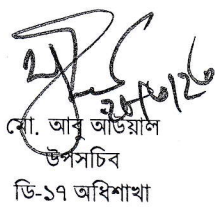 মো. আবু আউয়াল
উপসচিব
ডি-১৭ অধিশাখা